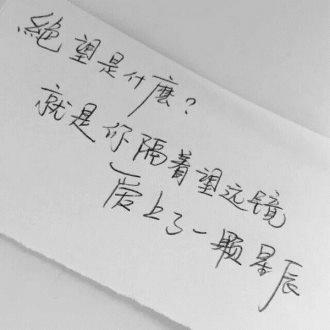 絕望是什麼？
就是你隔着望远镜
爱上了一颗星辰